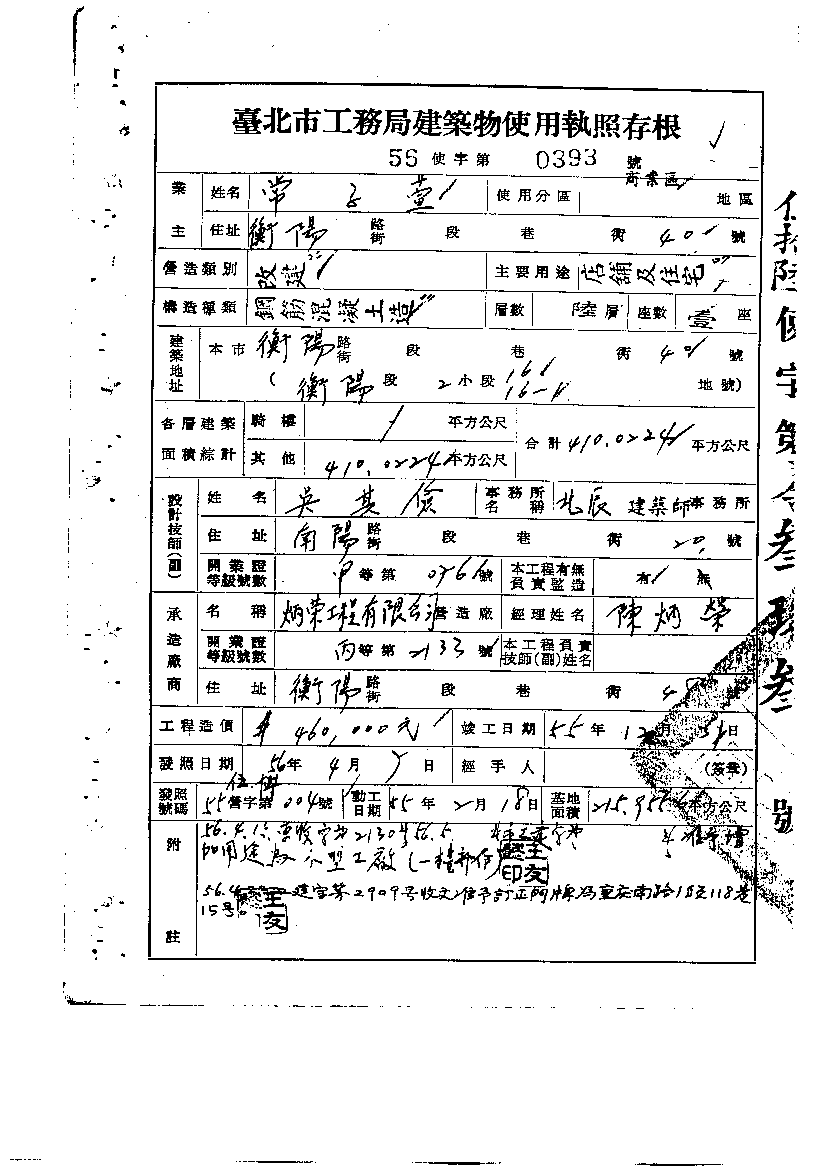 臺北市工務局建築物使用執照存根
56 使字第 0393 號
業主 姓名 常 萱 使用分區 商業區 地區
住址 衡陽 路街 段 巷 衖 40 號
營造類別 改建 主要用途 店舖及住宅
構造種類 鋼筋混凝土造 層數 陸層 座數 壹座
建築地址 本市 衡陽 路街 段 巷 衖 40 號
( 衡陽段 2小段 地號)
各層建築面積綜計 騎樓 平方公尺 合計 410.0224 平方公尺
其他 410.0224 平方公尺
設計技師(副) 姓名 吳其儉 事務所名稱 北辰 建築師事務所
住址 南陽 路街 段 巷 衖 20 號
開業證等級號數 甲等第 0761號 本工程有無負責監造 有 無
承造廠商 名稱 炳荣工程有限公司 營造廠 經理姓名 陳炳榮
開業證等級號數 丙等第 2133號 本工程負責技師(副)姓名
住址 衡陽 路街 段 巷 衖 號
工程造價 460,000元 竣工日期 55年12月31日
發照日期 56年4月 日 經手人 (簽章)
發照號碼 55營字第004號 動工日期 55年2月18日 基地面積 平方公尺
附註
加用途為小型工廠(一樓部份)
建字第2909号收文准予訂正門牌為重庆南路1段118巷
15号
王友
王友
號